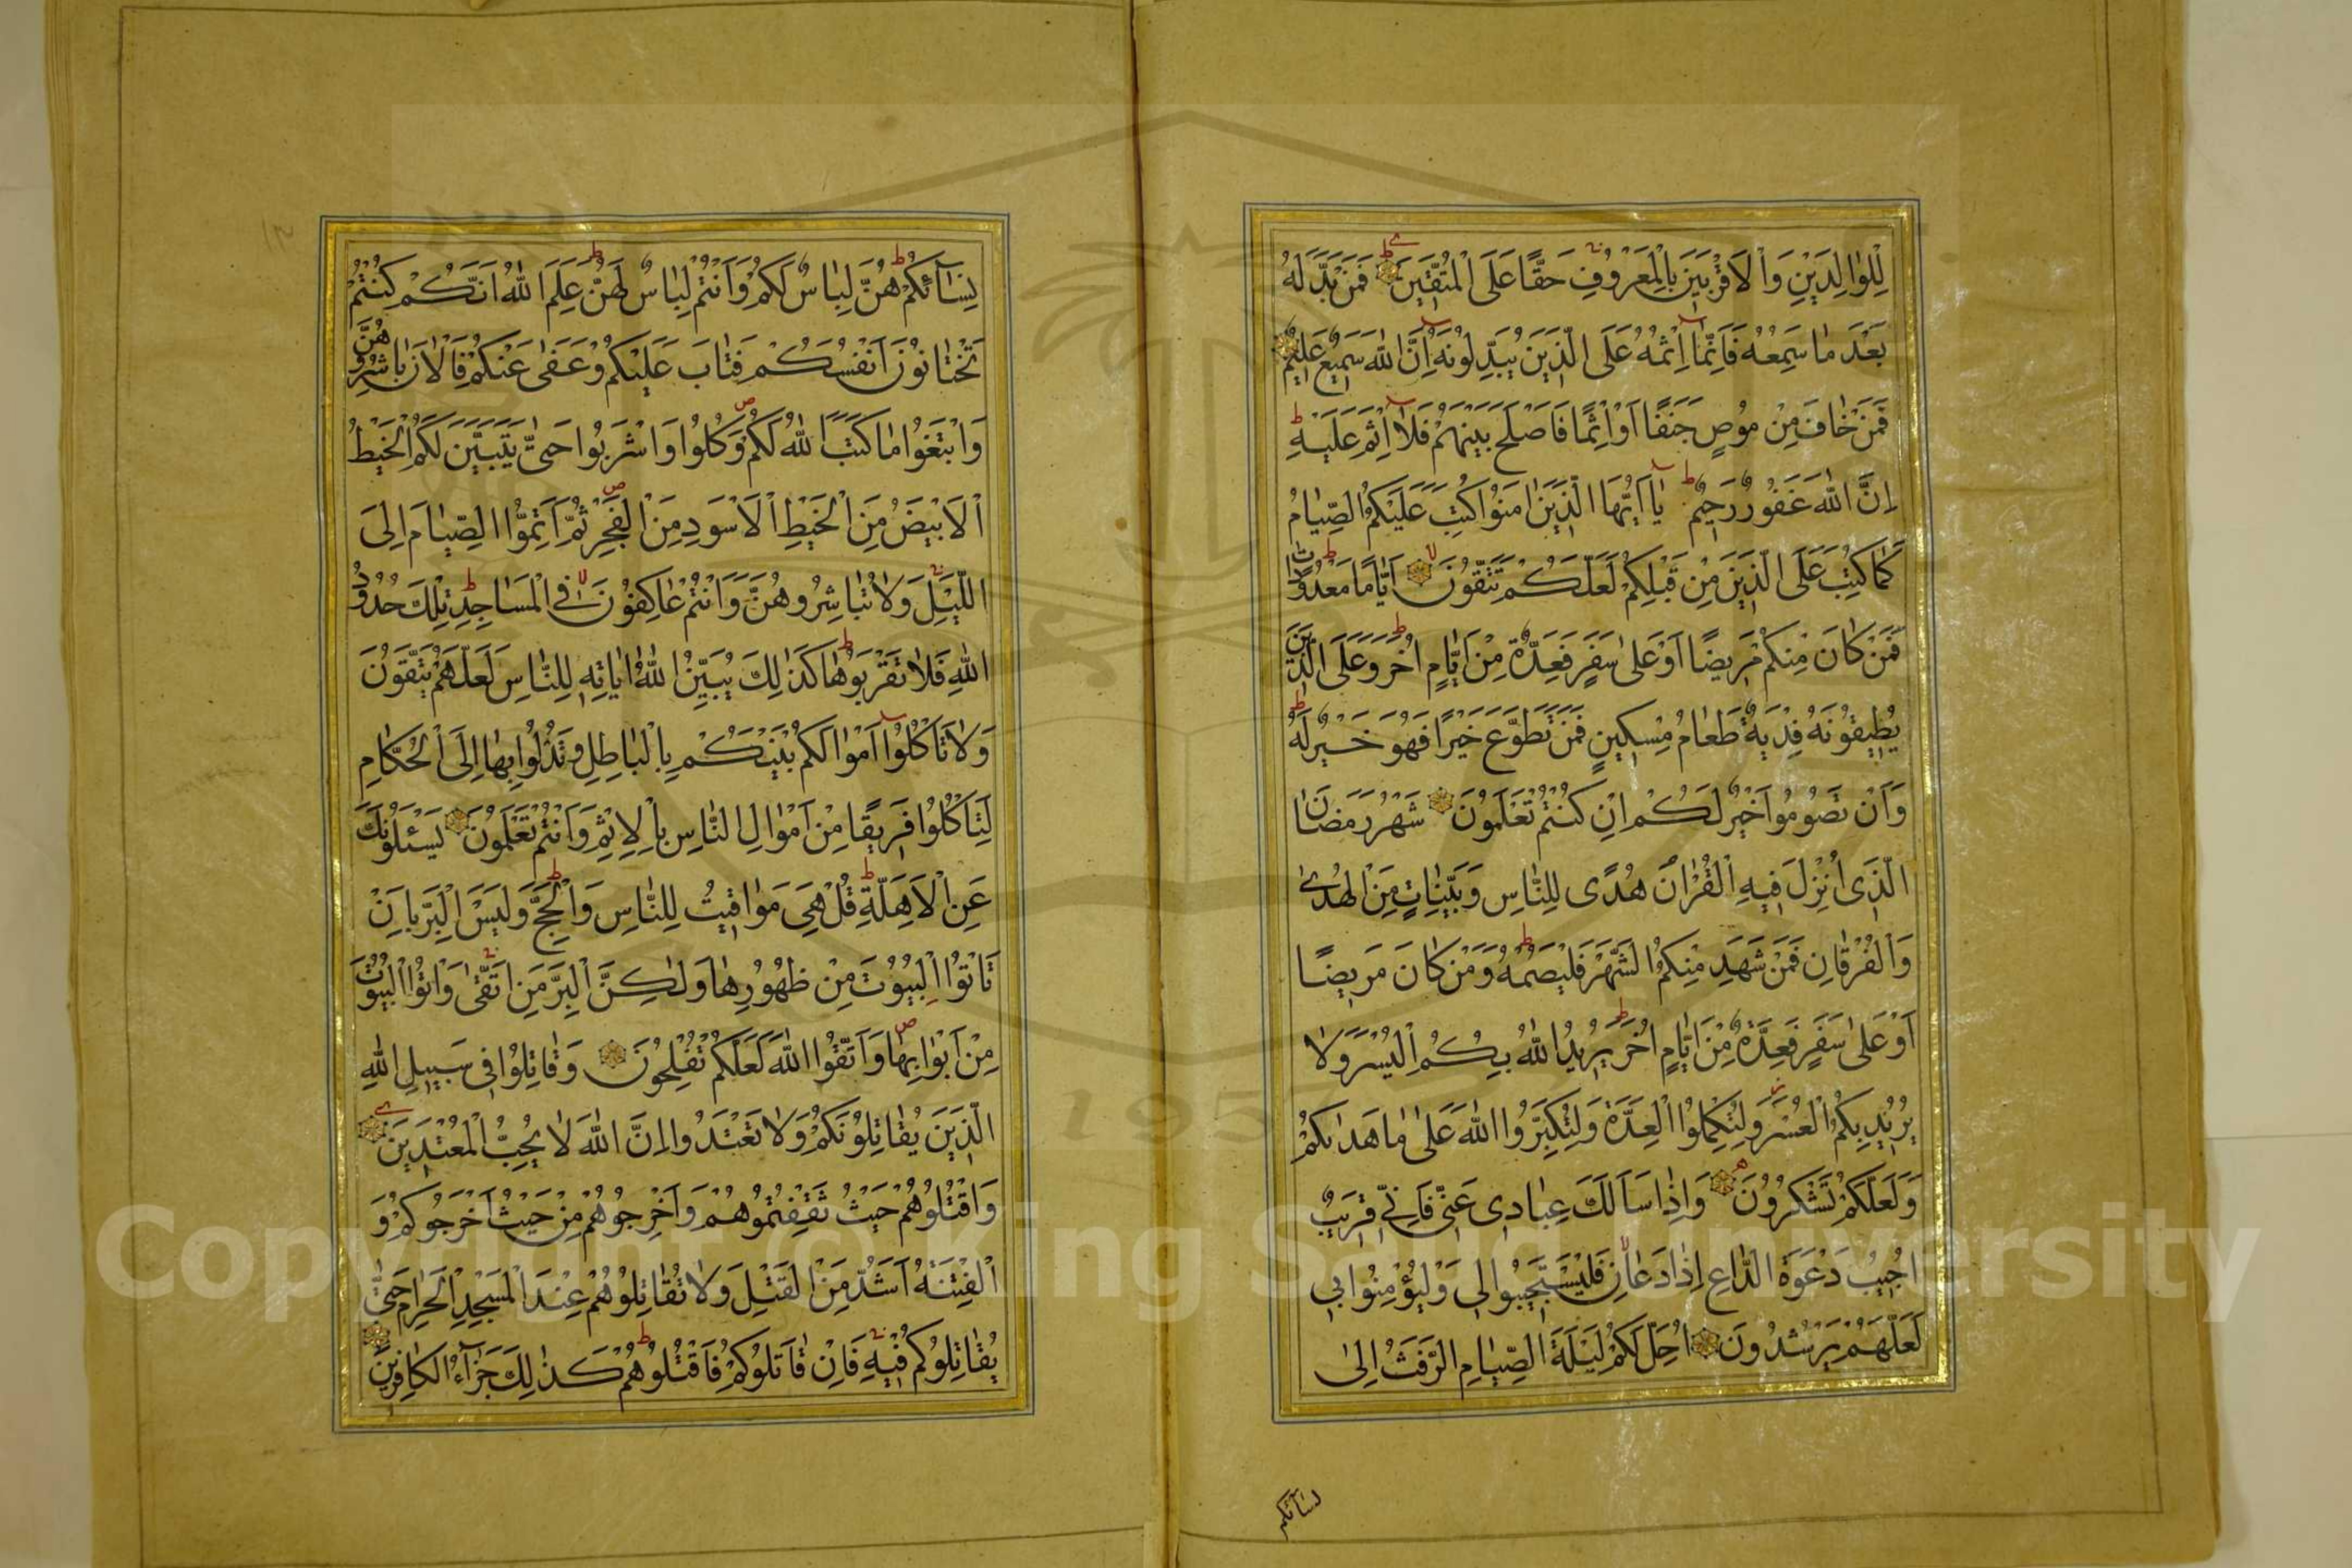 لِلْوَالِدَيْنِ وَالْاَقْرَبِينَ بِالْمَعْرُوفِ حَقًّا عَلَى الْمُتَّقِينَ فَمَنْ بَدَّلَهُ
بَعْدَ مَا سَمِعَهُ فَاِنَّمَا اِثْمُهُ عَلَى الَّذِينَ يُبَدِّلُونَهُ اِنَّ اللهَ سَمِيعٌ عَلِيمٌ
فَمَنْ خَافَ مِنْ مُوصٍ جَنَفًا اَوْ اِثْمًا فَاَصْلَحَ بَيْنَهُمْ فَلَا اِثْمَ عَلَيْهِ
اِنَّ اللهَ غَفُورٌ رَحِيمٌ يَا اَيُّهَا الَّذِينَ اٰمَنُوا كُتِبَ عَلَيْكُمُ الصِّيَامُ
كَمَا كُتِبَ عَلَى الَّذِينَ مِنْ قَبْلِكُمْ لَعَلَّكُمْ تَتَّقُونَ اَيَّامًا مَعْدُودَاتٍ
فَمَنْ كَانَ مِنْكُمْ مَرِيضًا اَوْ عَلٰى سَفَرٍ فَعِدَّةٌ مِنْ اَيَّامٍ اُخَرَ وَعَلَى الَّذِينَ
يُطِيقُونَهُ فِدْيَةٌ طَعَامُ مِسْكِينٍ فَمَنْ تَطَوَّعَ خَيْرًا فَهُوَ خَيْرٌ لَهُ
وَاَنْ تَصُومُوا خَيْرٌ لَكُمْ اِنْ كُنْتُمْ تَعْلَمُونَ شَهْرُ رَمَضَانَ
الَّذِى اُنْزِلَ فِيهِ الْقُرْاٰنُ هُدًى لِلنَّاسِ وَبَيِّنَاتٍ مِنَ الْهُدٰى
وَالْفُرْقَانِ فَمَنْ شَهِدَ مِنْكُمُ الشَّهْرَ فَلْيَصُمْهُ وَمَنْ كَانَ مَرِيضًا
اَوْ عَلٰى سَفَرٍ فَعِدَّةٌ مِنْ اَيَّامٍ اُخَرَ يُرِيدُ اللهُ بِكُمُ الْيُسْرَ وَلَا
يُرِيدُ بِكُمُ الْعُسْرَ وَلِتُكْمِلُوا الْعِدَّةَ وَلِتُكَبِّرُوا اللهَ عَلٰى مَا هَدٰىكُمْ
وَلَعَلَّكُمْ تَشْكُرُونَ وَاِذَا سَاَلَكَ عِبَادِى عَنِّى فَاِنِّى قَرِيبٌ
اُجِيبُ دَعْوَةَ الدَّاعِ اِذَا دَعَانِ فَلْيَسْتَجِيبُوا لِى وَلْيُؤْمِنُوا بِى
لَعَلَّهُمْ يَرْشُدُونَ اُحِلَّ لَكُمْ لَيْلَةَ الصِّيَامِ الرَّفَثُ اِلٰى
نسآئكم
نِسَآئِكُمْ هُنَّ لِبَاسٌ لَكُمْ وَاَنْتُمْ لِبَاسٌ لَهُنَّ عَلِمَ اللهُ اَنَّكُمْ كُنْتُمْ
تَخْتَانُونَ اَنْفُسَكُمْ فَتَابَ عَلَيْكُمْ وَعَفٰى عَنْكُمْ فَالْاٰنَ بَاشِرُوهُنَّ
وَابْتَغُوا مَا كَتَبَ اللهُ لَكُمْ وَكُلُوا وَاشْرَبُوا حَتّٰى يَتَبَيَّنَ لَكُمُ الْخَيْطُ
الْاَبْيَضُ مِنَ الْخَيْطِ الْاَسْوَدِ مِنَ الْفَجْرِ ثُمَّ اَتِمُّوا الصِّيَامَ اِلَى
اللَّيْلِ وَلَا تُبَاشِرُوهُنَّ وَاَنْتُمْ عَاكِفُونَ فِى الْمَسَاجِدِ تِلْكَ حُدُودُ
اللهِ فَلَا تَقْرَبُوهَا كَذٰلِكَ يُبَيِّنُ اللهُ اٰيَاتِهِ لِلنَّاسِ لَعَلَّهُمْ يَتَّقُونَ
وَلَا تَاْكُلُوا اَمْوَالَكُمْ بَيْنَكُمْ بِالْبَاطِلِ وَتُدْلُوا بِهَا اِلَى الْحُكَّامِ
لِتَاْكُلُوا فَرِيقًا مِنْ اَمْوَالِ النَّاسِ بِالْاِثْمِ وَاَنْتُمْ تَعْلَمُونَ يَسْئَلُونَكَ
عَنِ الْاَهِلَّةِ قُلْ هِىَ مَوَاقِيتُ لِلنَّاسِ وَالْحَجِّ وَلَيْسَ الْبِرُّ بِاَنْ
تَاْتُوا الْبُيُوتَ مِنْ ظُهُورِهَا وَلٰكِنَّ الْبِرَّ مَنِ اتَّقٰى وَاْتُوا الْبُيُوتَ
مِنْ اَبْوَابِهَا وَاتَّقُوا اللهَ لَعَلَّكُمْ تُفْلِحُونَ وَقَاتِلُوا فِى سَبِيلِ اللهِ
الَّذِينَ يُقَاتِلُونَكُمْ وَلَا تَعْتَدُوا اِنَّ اللهَ لَا يُحِبُّ الْمُعْتَدِينَ
وَاقْتُلُوهُمْ حَيْثُ ثَقِفْتُمُوهُمْ وَاَخْرِجُوهُمْ مِنْ حَيْثُ اَخْرَجُوكُمْ وَ
الْفِتْنَةُ اَشَدُّ مِنَ الْقَتْلِ وَلَا تُقَاتِلُوهُمْ عِنْدَ الْمَسْجِدِ الْحَرَامِ حَتّٰى
يُقَاتِلُوكُمْ فِيهِ فَاِنْ قَاتَلُوكُمْ فَاقْتُلُوهُمْ كَذٰلِكَ جَزَآءُ الْكَافِرِينَ
Copyright © King Saud University
195